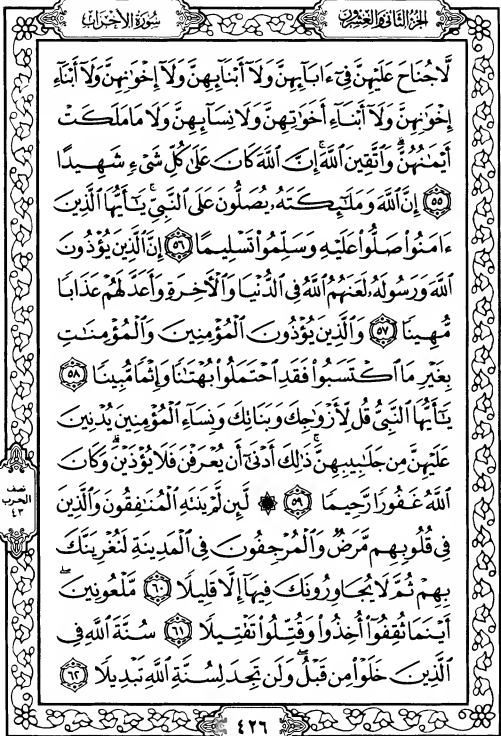 الجزء الثاني والعشرون
سورة الأحزاب
لَّا جُنَاحَ عَلَيْهِنَّ فِىٓ ءَابَآئِهِنَّ وَلَآ أَبْنَآئِهِنَّ وَلَآ إِخْوَٰنِهِنَّ وَلَآ أَبْنَآءِ
إِخْوَٰنِهِنَّ وَلَآ أَبْنَآءِ أَخَوَٰتِهِنَّ وَلَا نِسَآئِهِنَّ وَلَا مَا مَلَكَتْ
أَيْمَٰنُهُنَّ ۗ وَٱتَّقِينَ ٱللَّهَ ۚ إِنَّ ٱللَّهَ كَانَ عَلَىٰ كُلِّ شَىْءٍ شَهِيدًا
٥٥ إِنَّ ٱللَّهَ وَمَلَٰٓئِكَتَهُۥ يُصَلُّونَ عَلَى ٱلنَّبِىِّ ۚ يَٰٓأَيُّهَا ٱلَّذِينَ
ءَامَنُوا۟ صَلُّوا۟ عَلَيْهِ وَسَلِّمُوا۟ تَسْلِيمًا ٥٦ إِنَّ ٱلَّذِينَ يُؤْذُونَ
ٱللَّهَ وَرَسُولَهُۥ لَعَنَهُمُ ٱللَّهُ فِى ٱلدُّنْيَا وَٱلْـَٔاخِرَةِ وَأَعَدَّ لَهُمْ عَذَابًا
مُّهِينًا ٥٧ وَٱلَّذِينَ يُؤْذُونَ ٱلْمُؤْمِنِينَ وَٱلْمُؤْمِنَٰتِ
بِغَيْرِ مَا ٱكْتَسَبُوا۟ فَقَدِ ٱحْتَمَلُوا۟ بُهْتَٰنًا وَإِثْمًا مُّبِينًا ٥٨
يَٰٓأَيُّهَا ٱلنَّبِىُّ قُل لِّأَزْوَٰجِكَ وَبَنَاتِكَ وَنِسَآءِ ٱلْمُؤْمِنِينَ يُدْنِينَ
عَلَيْهِنَّ مِن جَلَٰبِيبِهِنَّ ۚ ذَٰلِكَ أَدْنَىٰٓ أَن يُعْرَفْنَ فَلَا يُؤْذَيْنَ ۗ وَكَانَ
ٱللَّهُ غَفُورًا رَّحِيمًا ٥٩ ۞ لَّئِن لَّمْ يَنتَهِ ٱلْمُنَٰفِقُونَ وَٱلَّذِينَ
فِى قُلُوبِهِم مَّرَضٌ وَٱلْمُرْجِفُونَ فِى ٱلْمَدِينَةِ لَنُغْرِيَنَّكَ
بِهِمْ ثُمَّ لَا يُجَاوِرُونَكَ فِيهَآ إِلَّا قَلِيلًا ٦٠ مَّلْعُونِينَ ۖ
أَيْنَمَا ثُقِفُوٓا۟ أُخِذُوا۟ وَقُتِّلُوا۟ تَقْتِيلًا ٦١ سُنَّةَ ٱللَّهِ فِى
ٱلَّذِينَ خَلَوْا۟ مِن قَبْلُ ۖ وَلَن تَجِدَ لِسُنَّةِ ٱللَّهِ تَبْدِيلًا ٦٢
نصف
الحزب
٤٣
٤٢٦